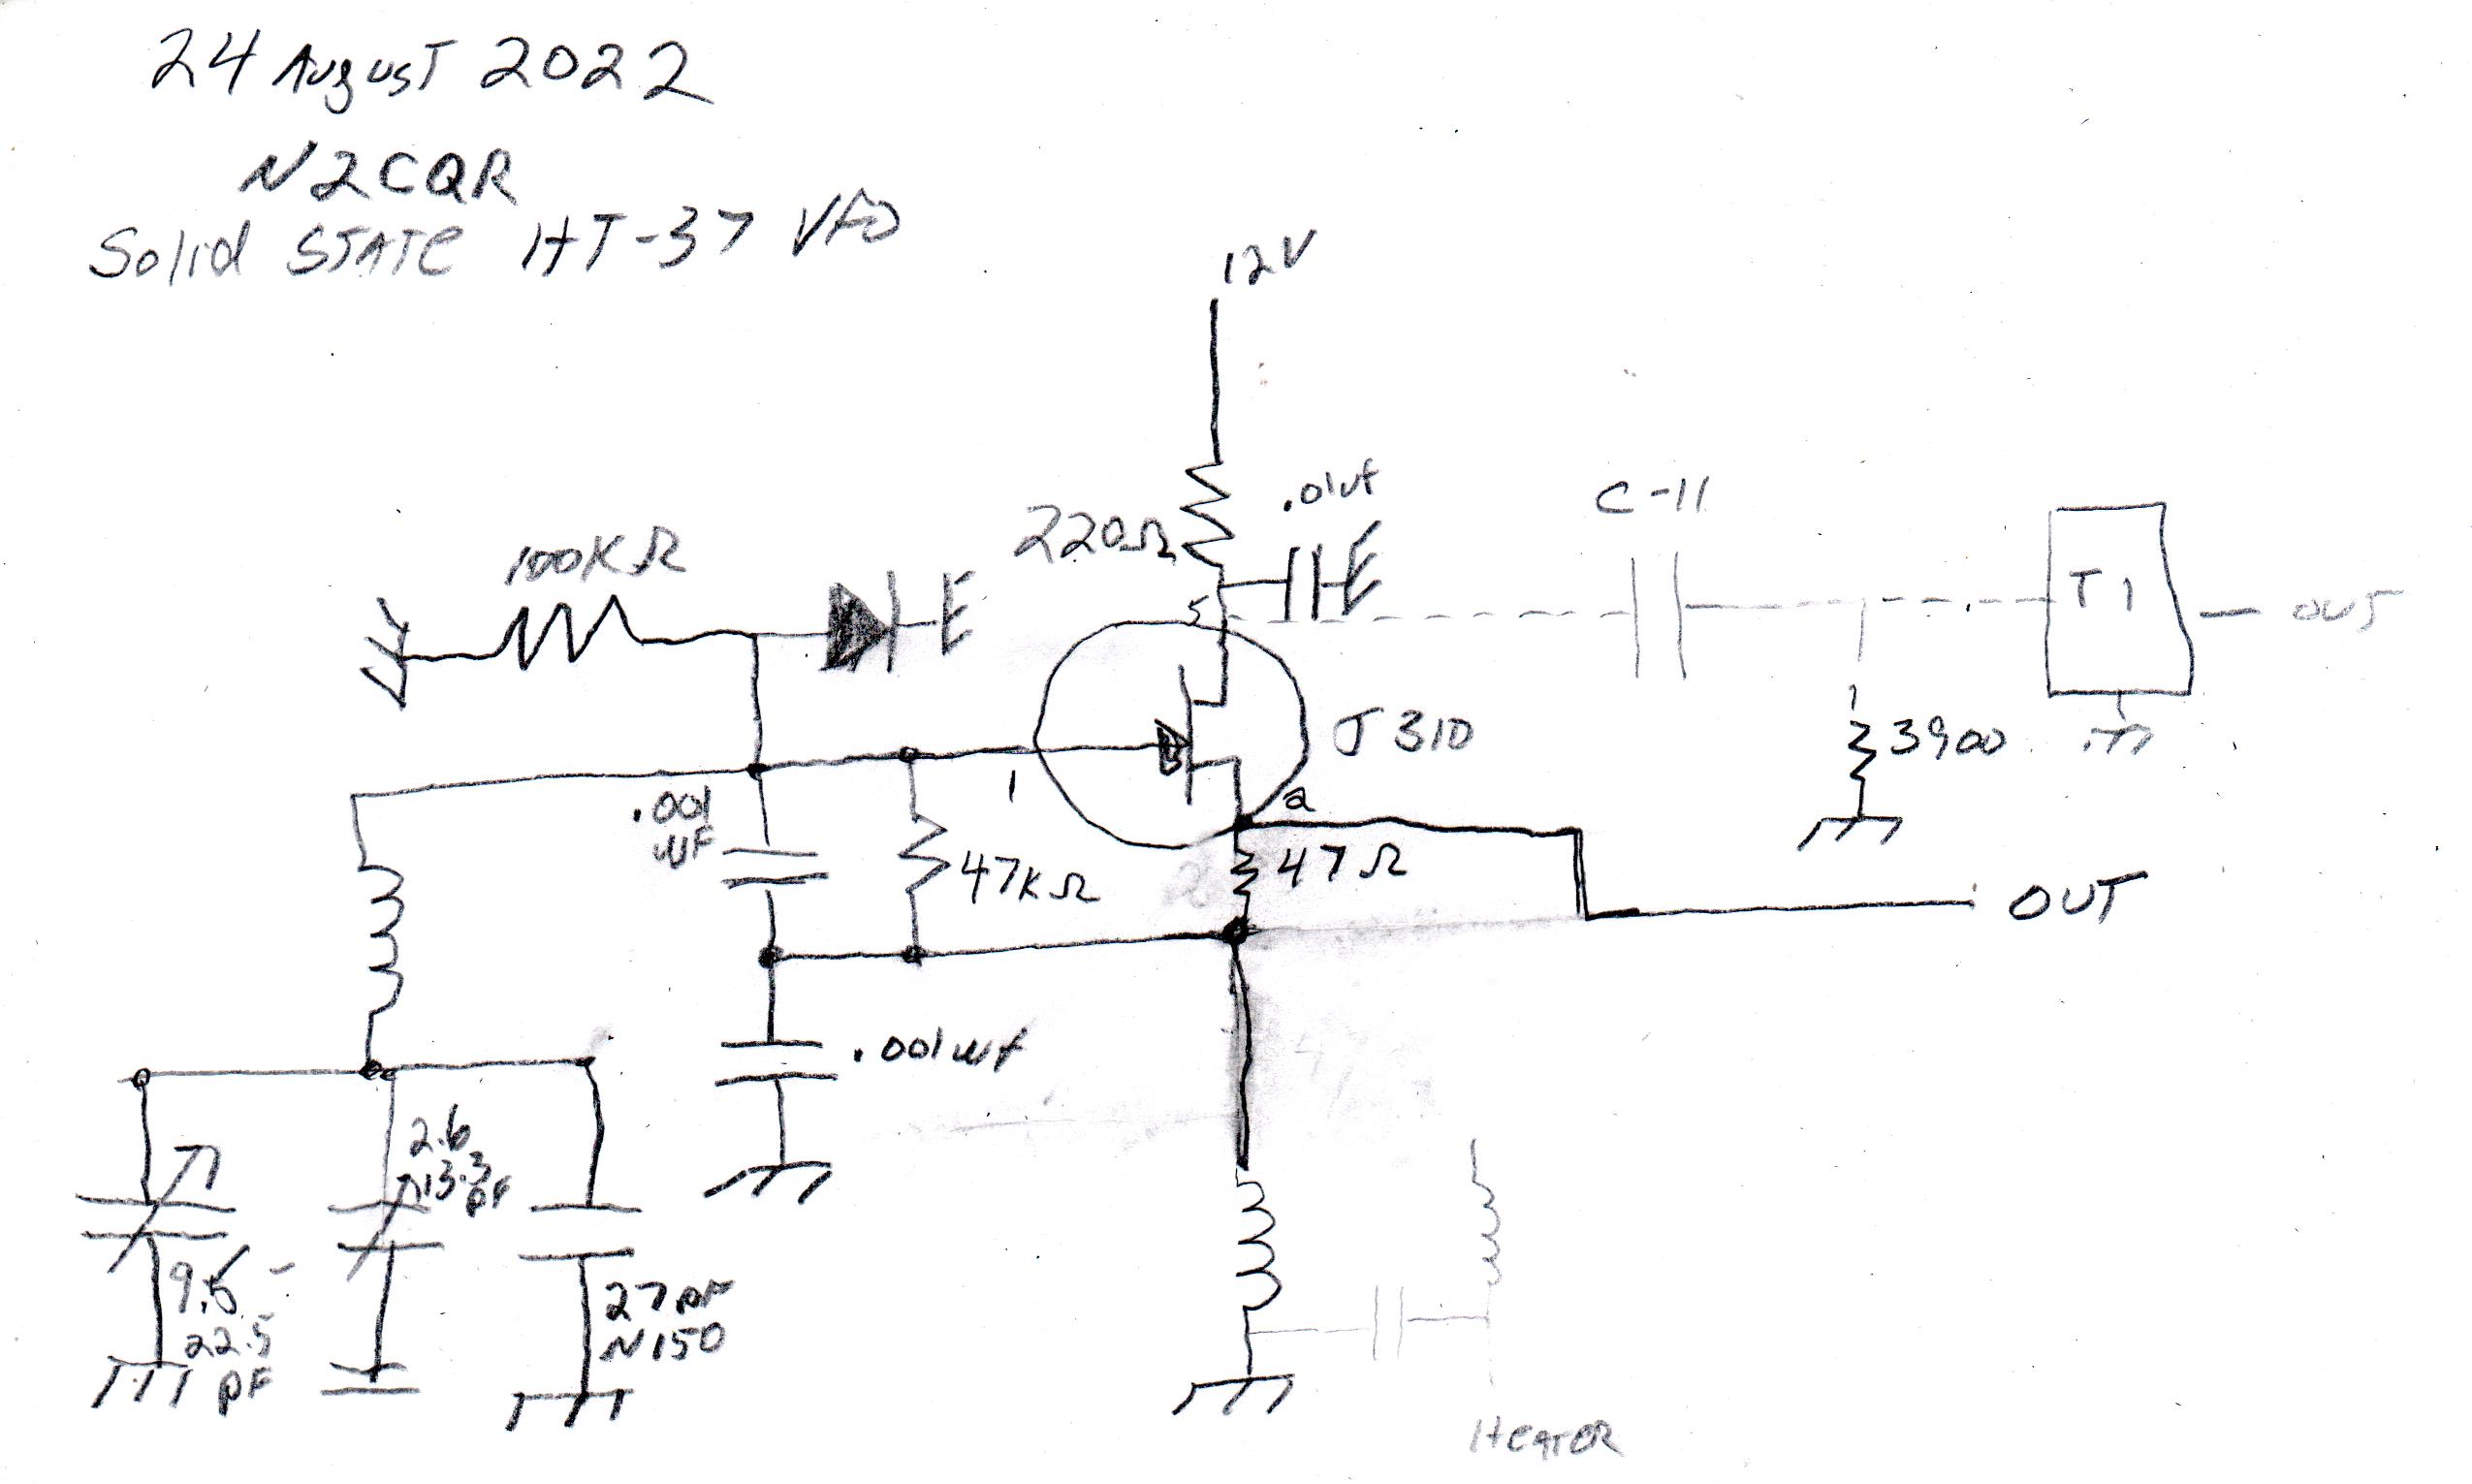 24 August 2022
N2CQR
Solid STATE HT-37 VFO
12V
.01uf
C-11
220Ω
100KΩ
5
T1
OUT
J310
3900
1
2
.001
uF
47KΩ
47Ω
OUT
.001uf
2.6
13.3
pF
9.6 -
22.5
pF
27pF
N150
HEATER